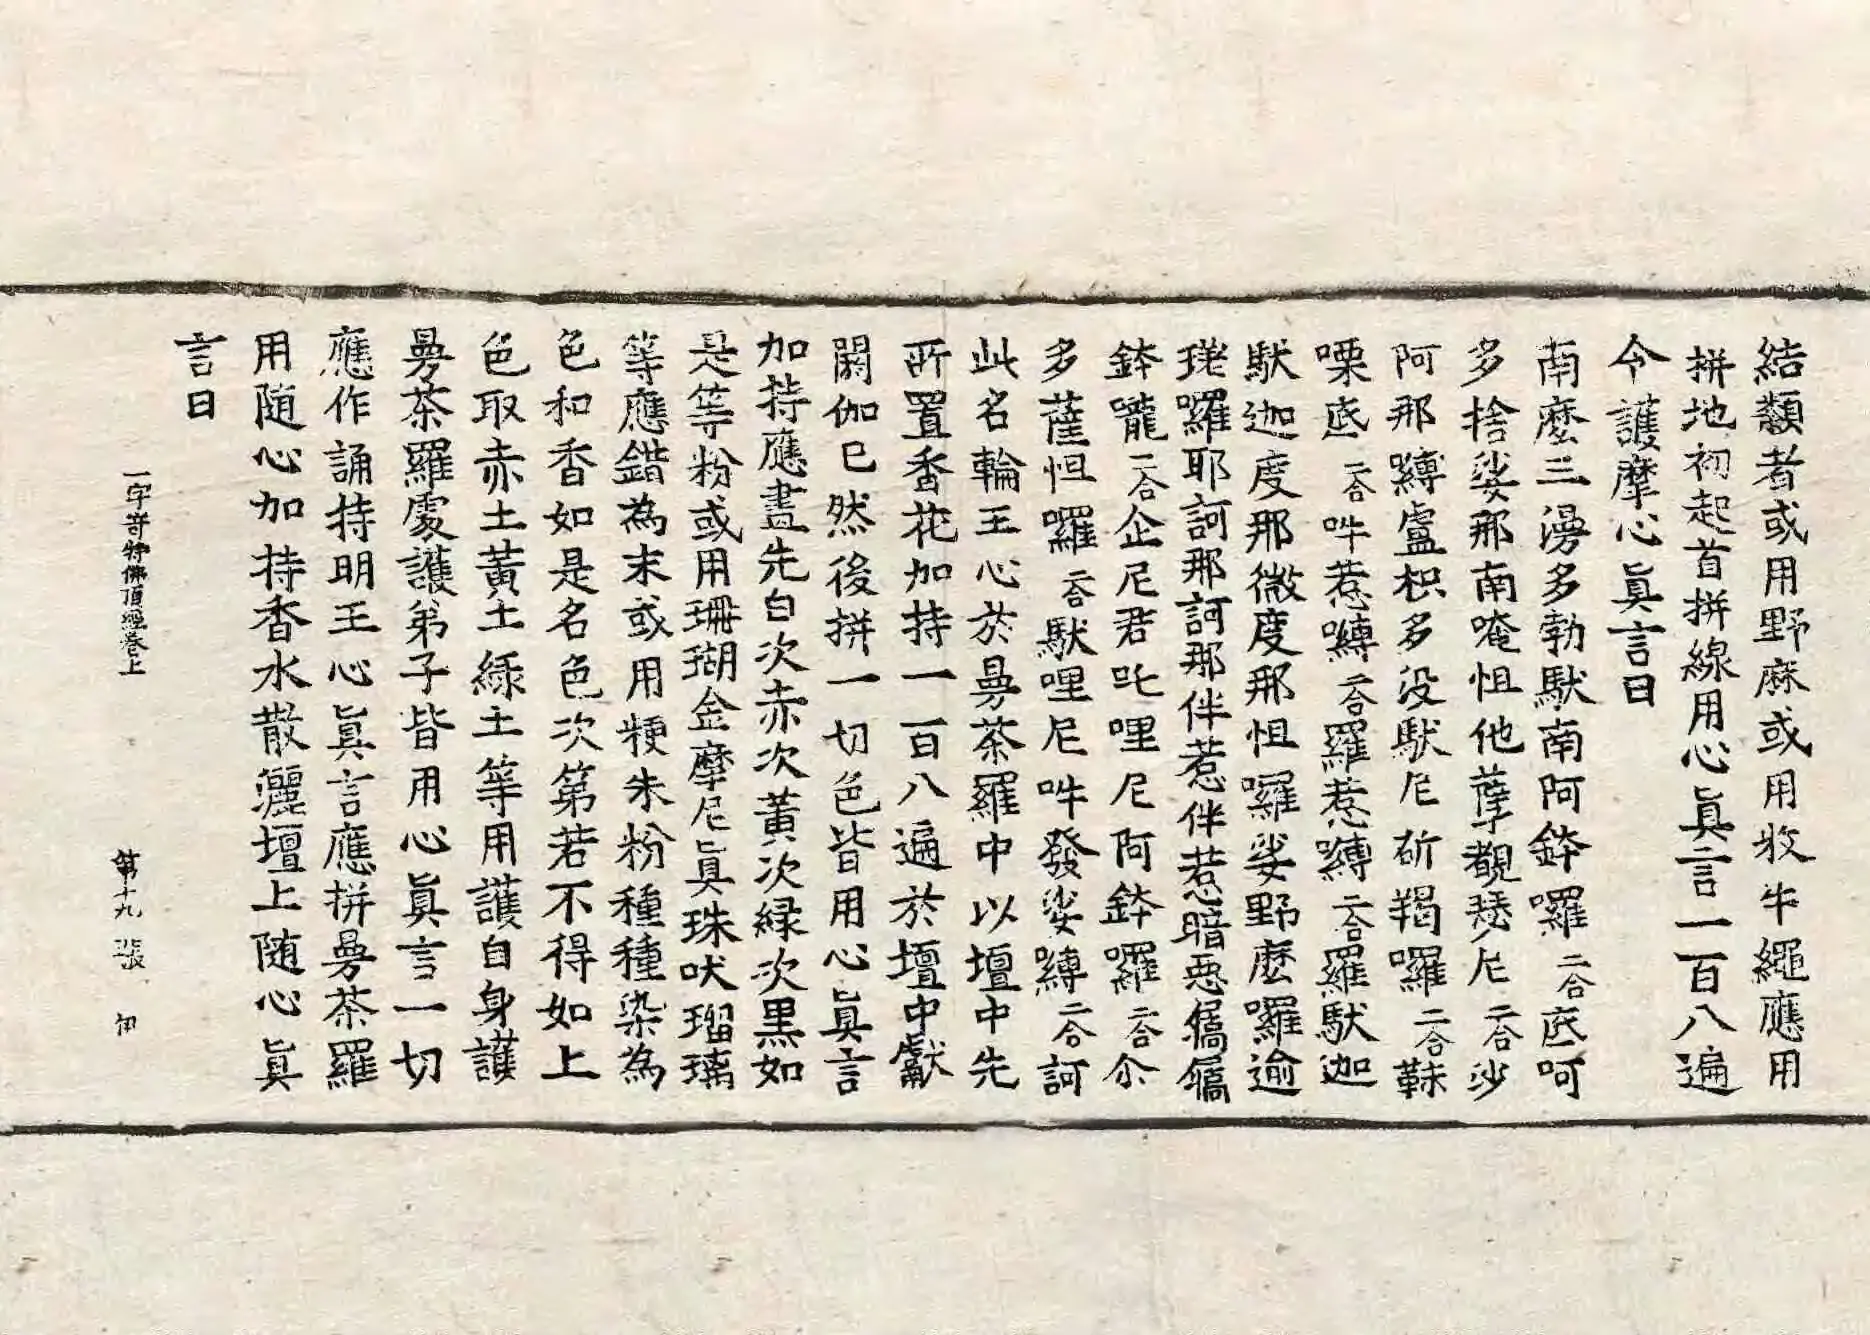 結類者或用野麻或用牧牛繩應用
拼地初起首拼線用心眞言一百八遍
令護摩心眞言曰
南麼三漫多勃馱南阿鉢囉二合底呵
多捨娑那南唵怛他孽覩瑟尼二合沙
阿那嚩盧枳多没馱尼斫羯囉二合靺
㗚底二合吽惹嚩二合羅惹嚩二合羅馱迦
馱迦度那微度那怛囉娑野麼囉逾
瑳囉耶訶那訶那伴惹伴惹暗惡㒿㒿
鉢㘕二合企尼君吒哩尼阿鉢囉二合尒
多薩怛囉二合馱哩尼吽發娑嚩二合訶
此名輪王心於曼荼羅中以壇中先
所置香花加持一百八遍於壇中獻
閼伽已然後拼一切色皆用心眞言
加持應畫先白次赤次黃次緑次黑如
是等粉或用珊瑚金摩尼眞珠吠瑠璃
等應鎝為末或用粳朱粉種種染為
色和香如是名色次第若不得如上
色取赤土黃土緑土等用護自身護
曼荼羅處護弟子皆用心眞言一切
應作誦持明王心眞言應拼曼荼羅
用随心加持香水散灑壇上随心眞
言曰
一字竒特佛頂經卷上 第十九張